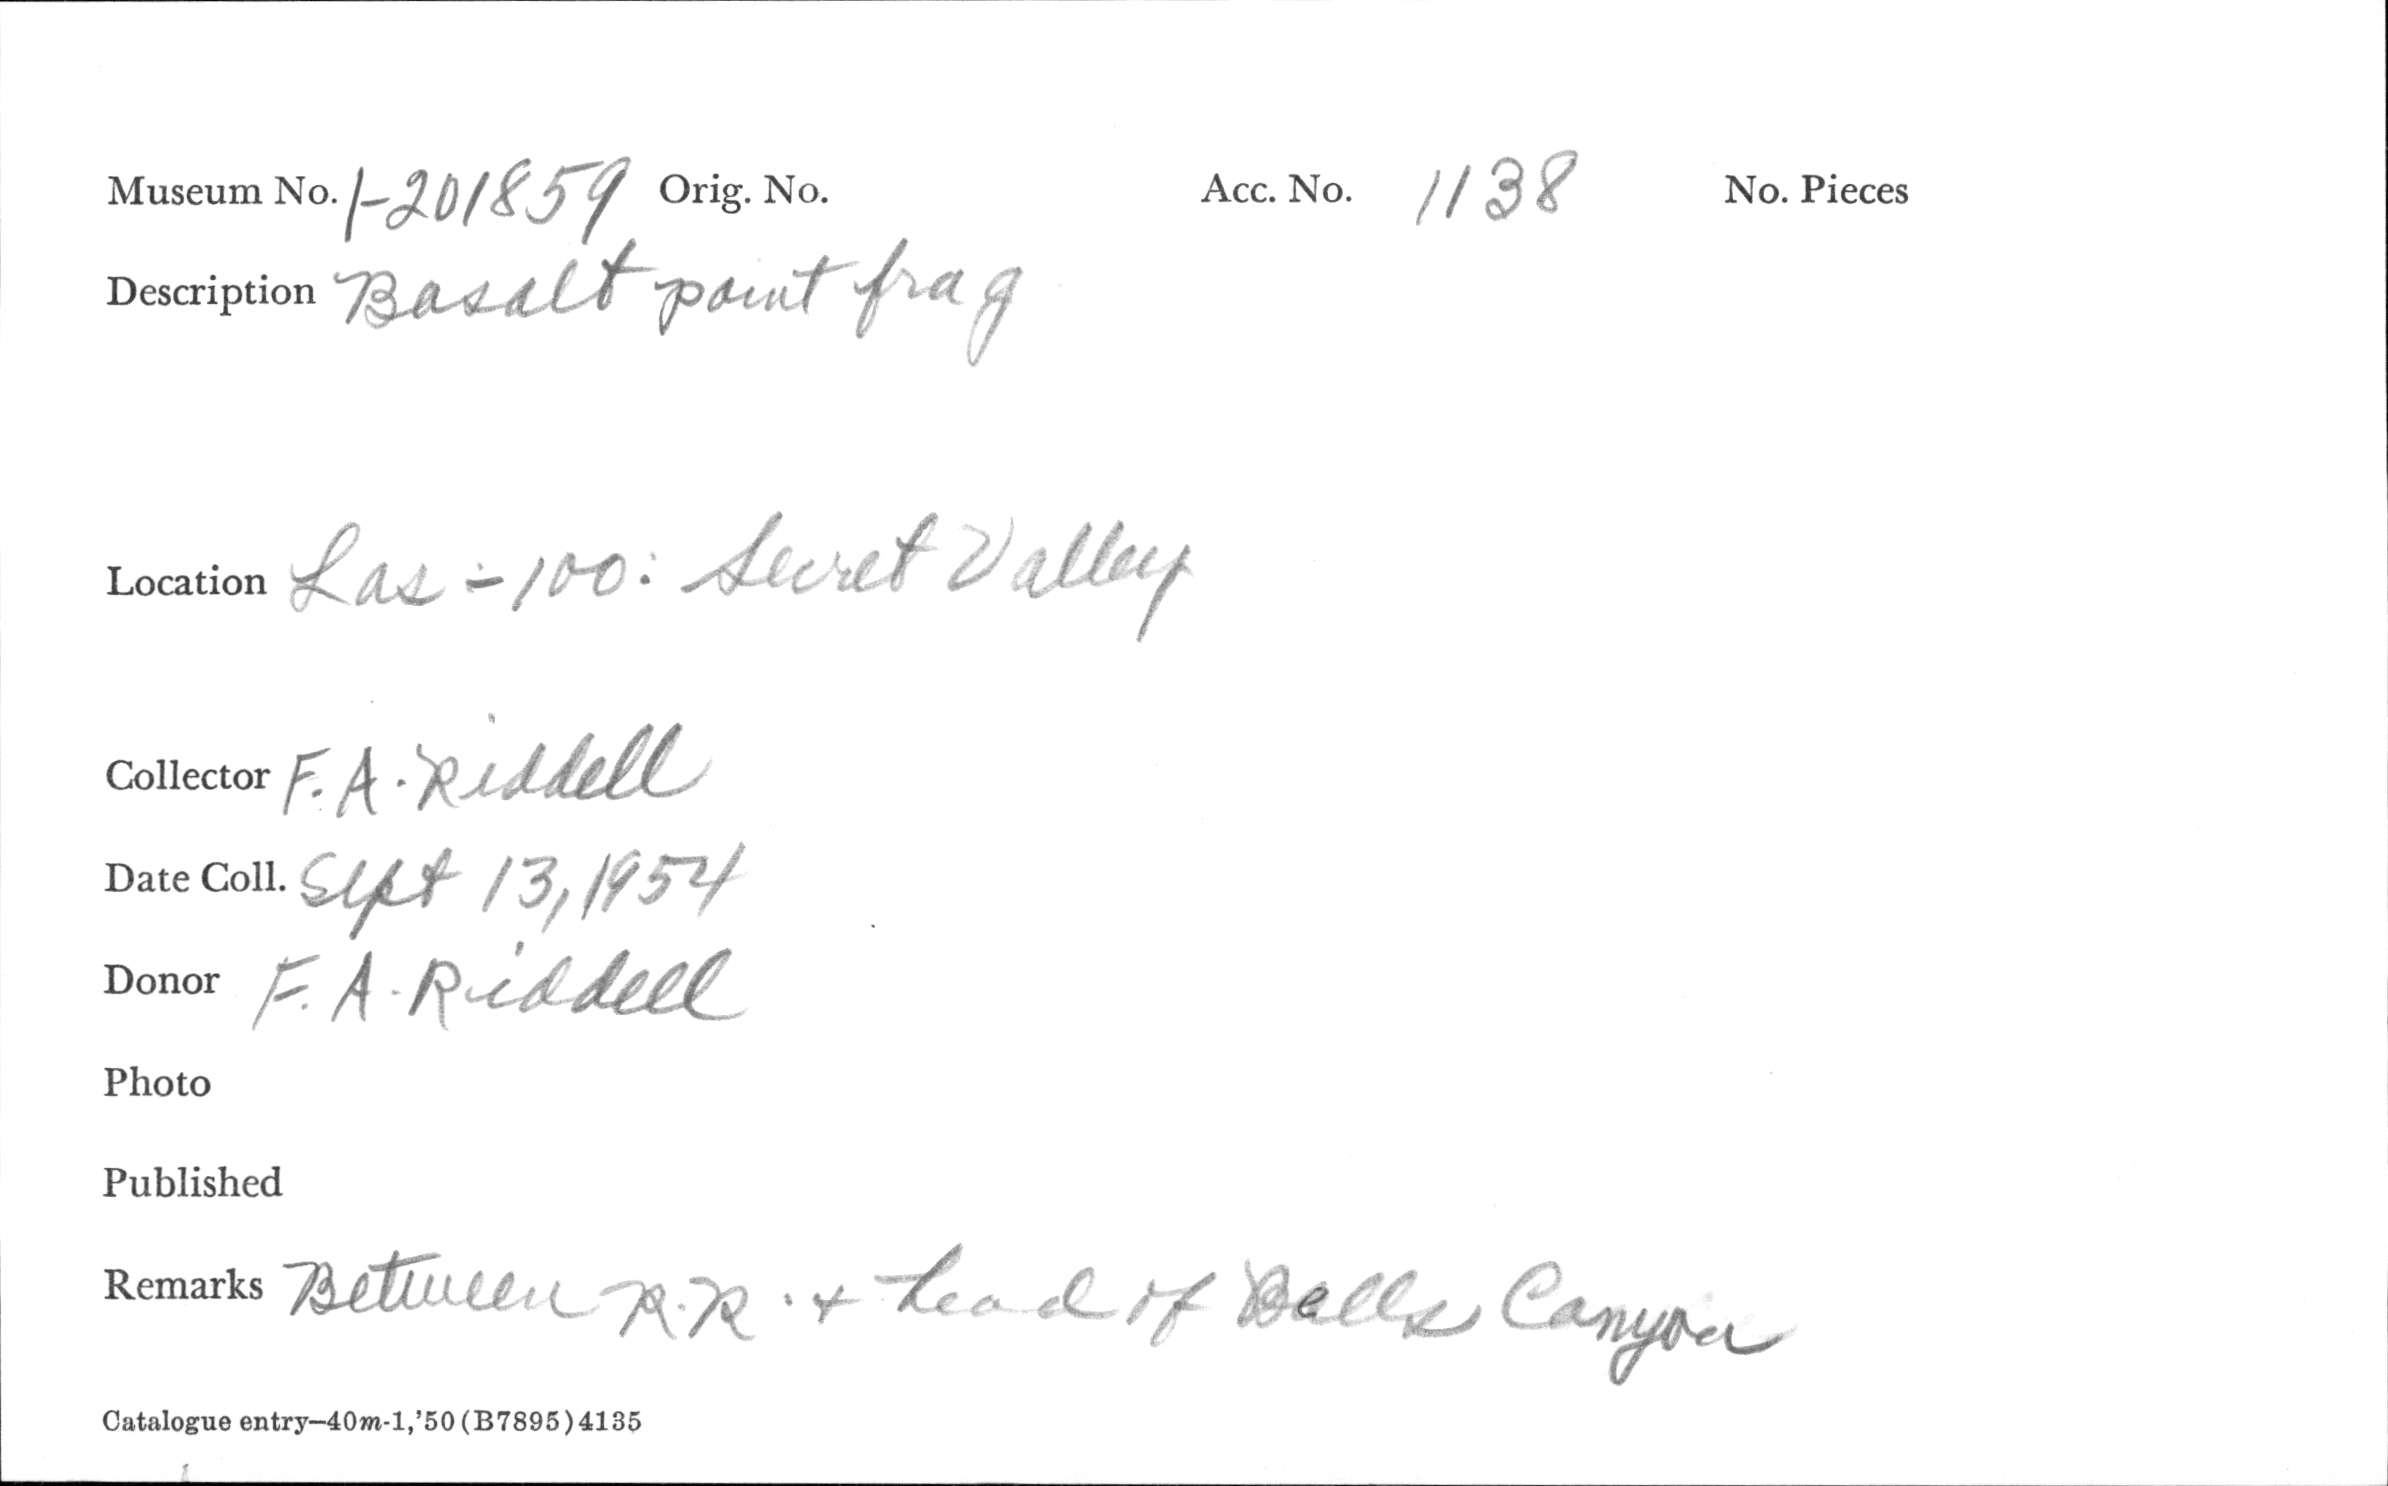 Museum No. 1-201859 Orig. No. Acc. No. 1138 No. Pieces
Description Basalt point frag
Location Las-100: Secret Valley
Collector F. A. Riddell
Date Coll. Sept 13, 1954
Donor F. A. Riddell
Photo
Published
Remarks Between R.R. + head of Balls Canyon
Catalogue entry—40m-1,'50(B7895)4135